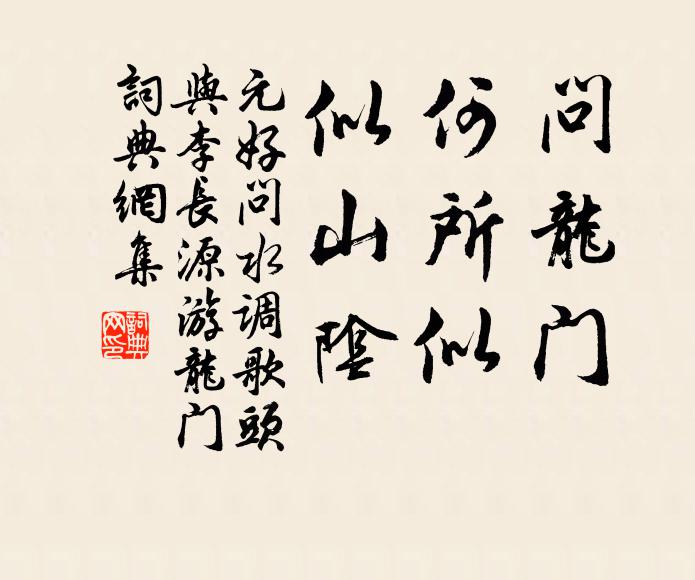 問龍门
何所似
似山陰
元好问水调歌頭
與李長源游龍门
詞典網集
詞典网印